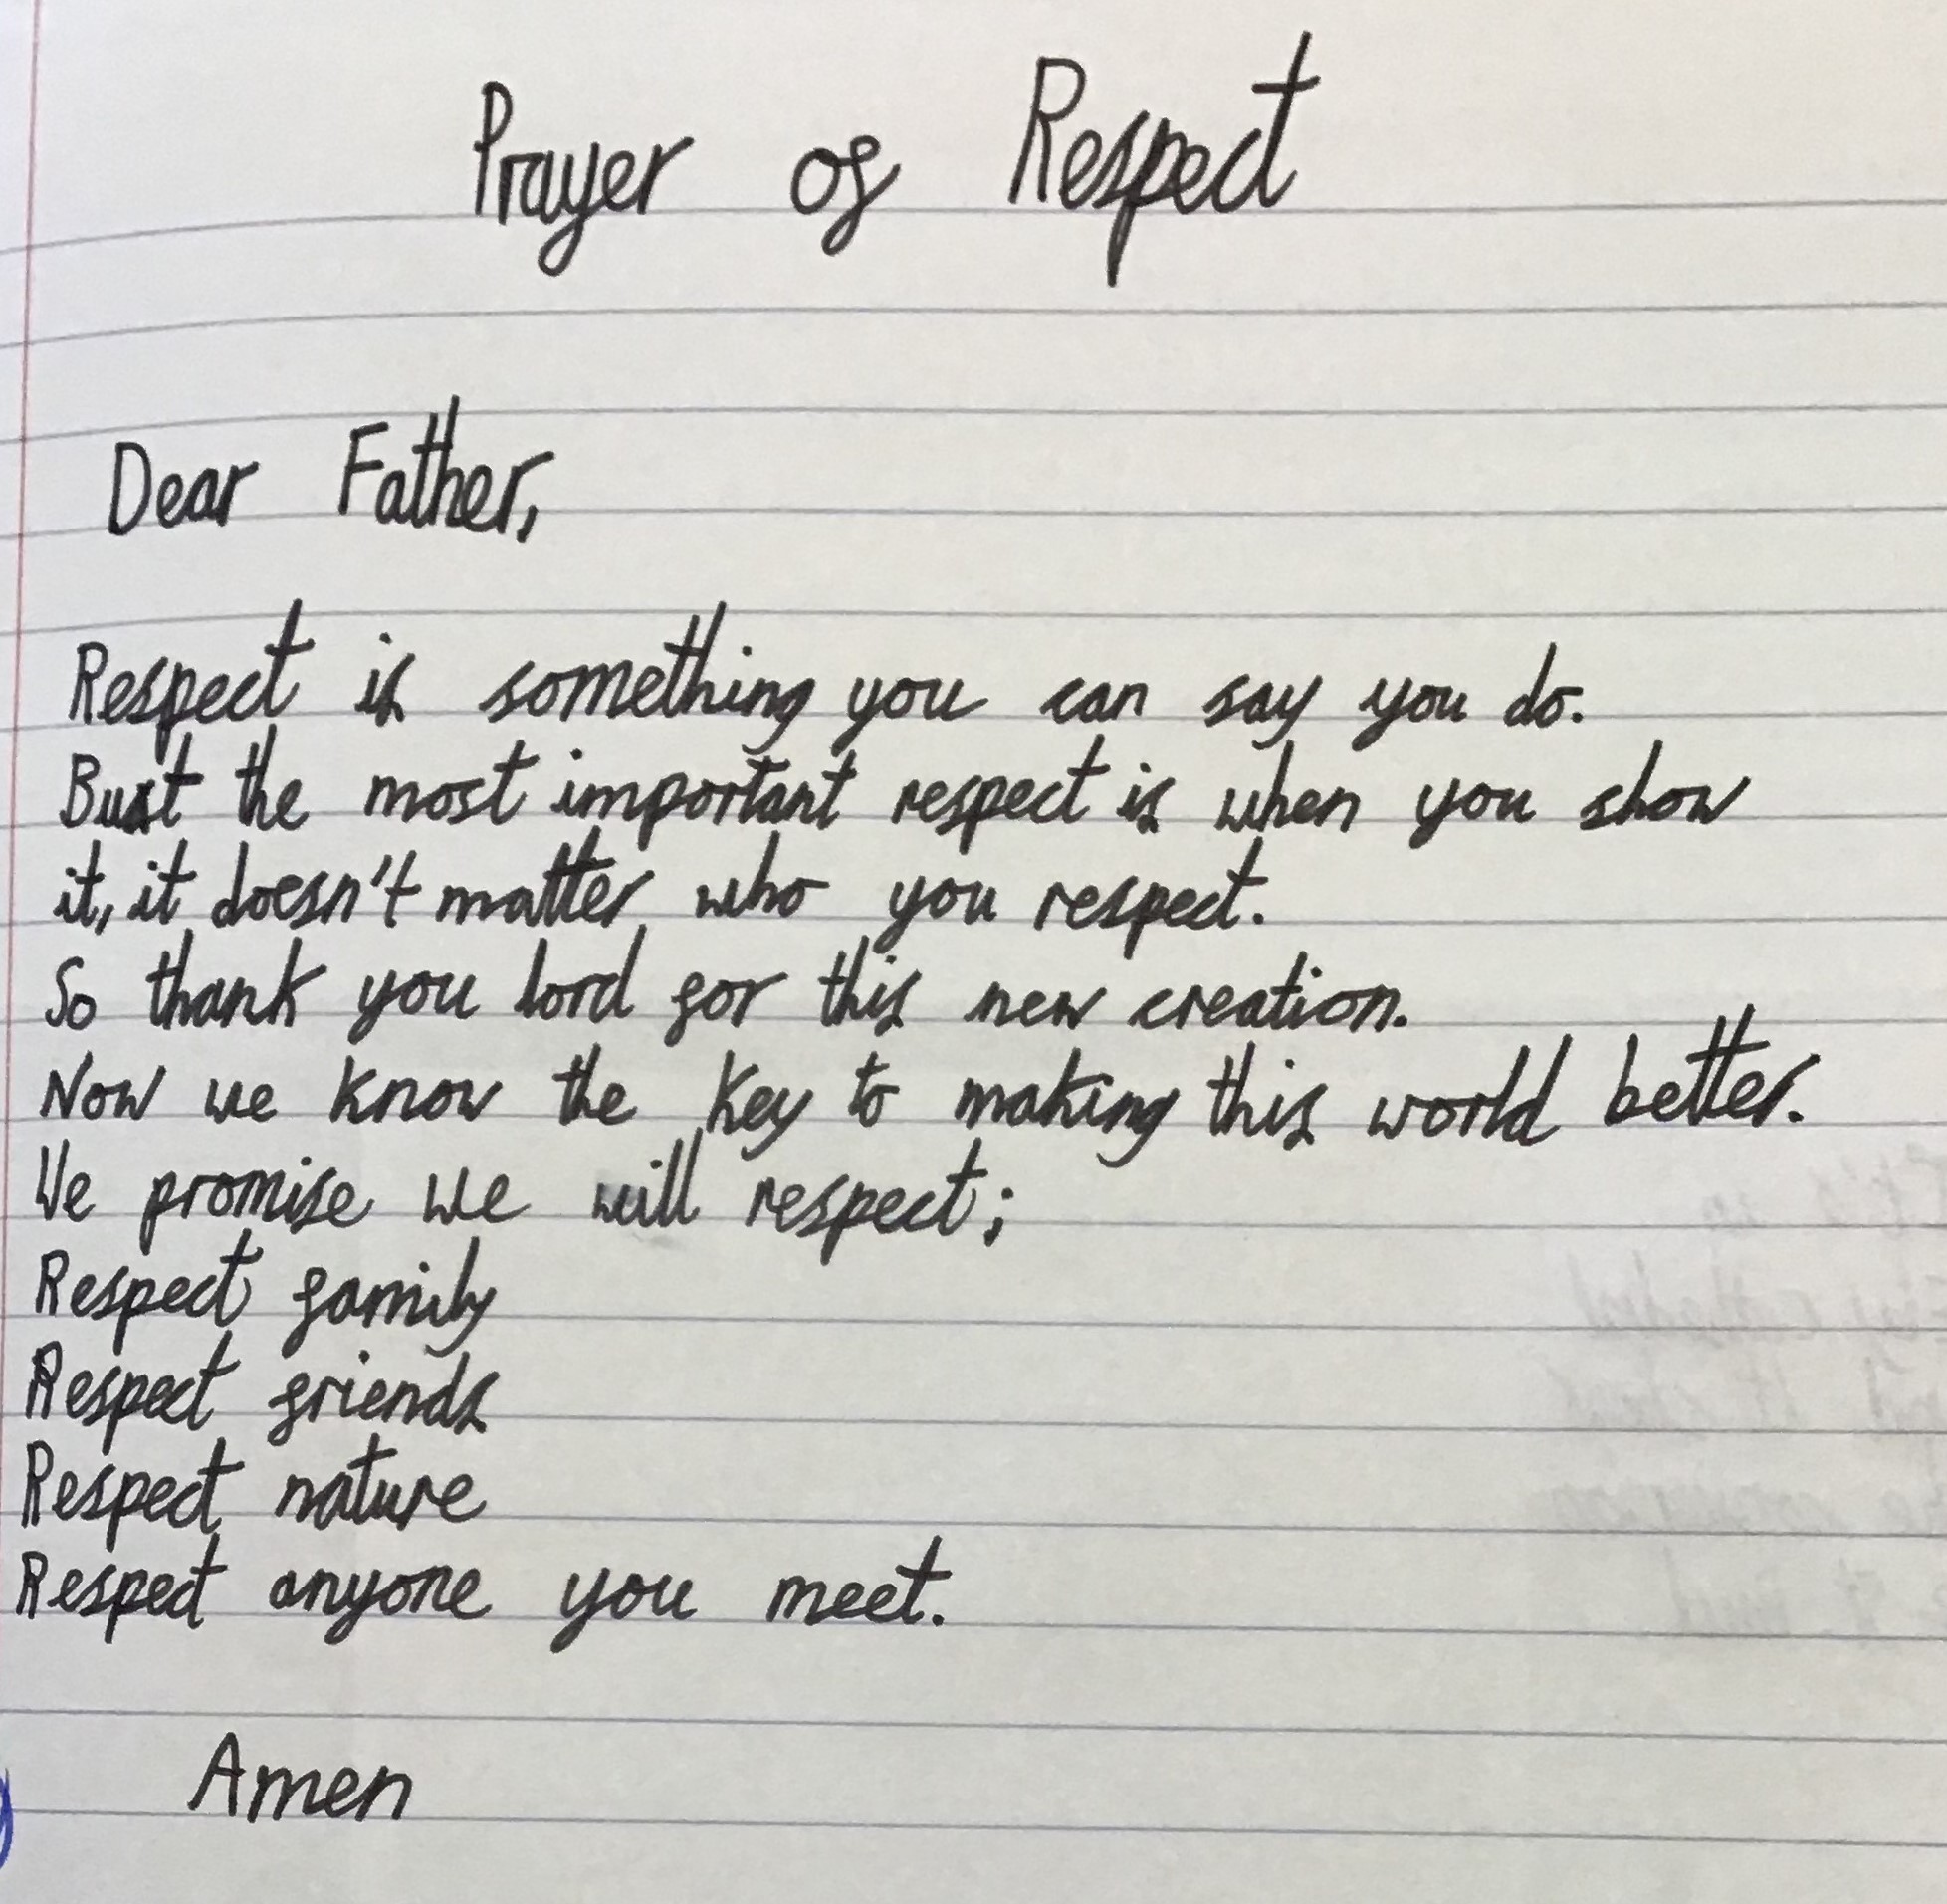 Prayer of Respect
Dear Father,
Respect is something you can say you do.
But the most important respect is when you show
it, it doesn't matter who you respect.
So thank you lord for this new creation.
Now we know the key to making this world better.
We promise we will respect;
Respect family
Respect friends
Respect nature
Respect anyone you meet.
Amen